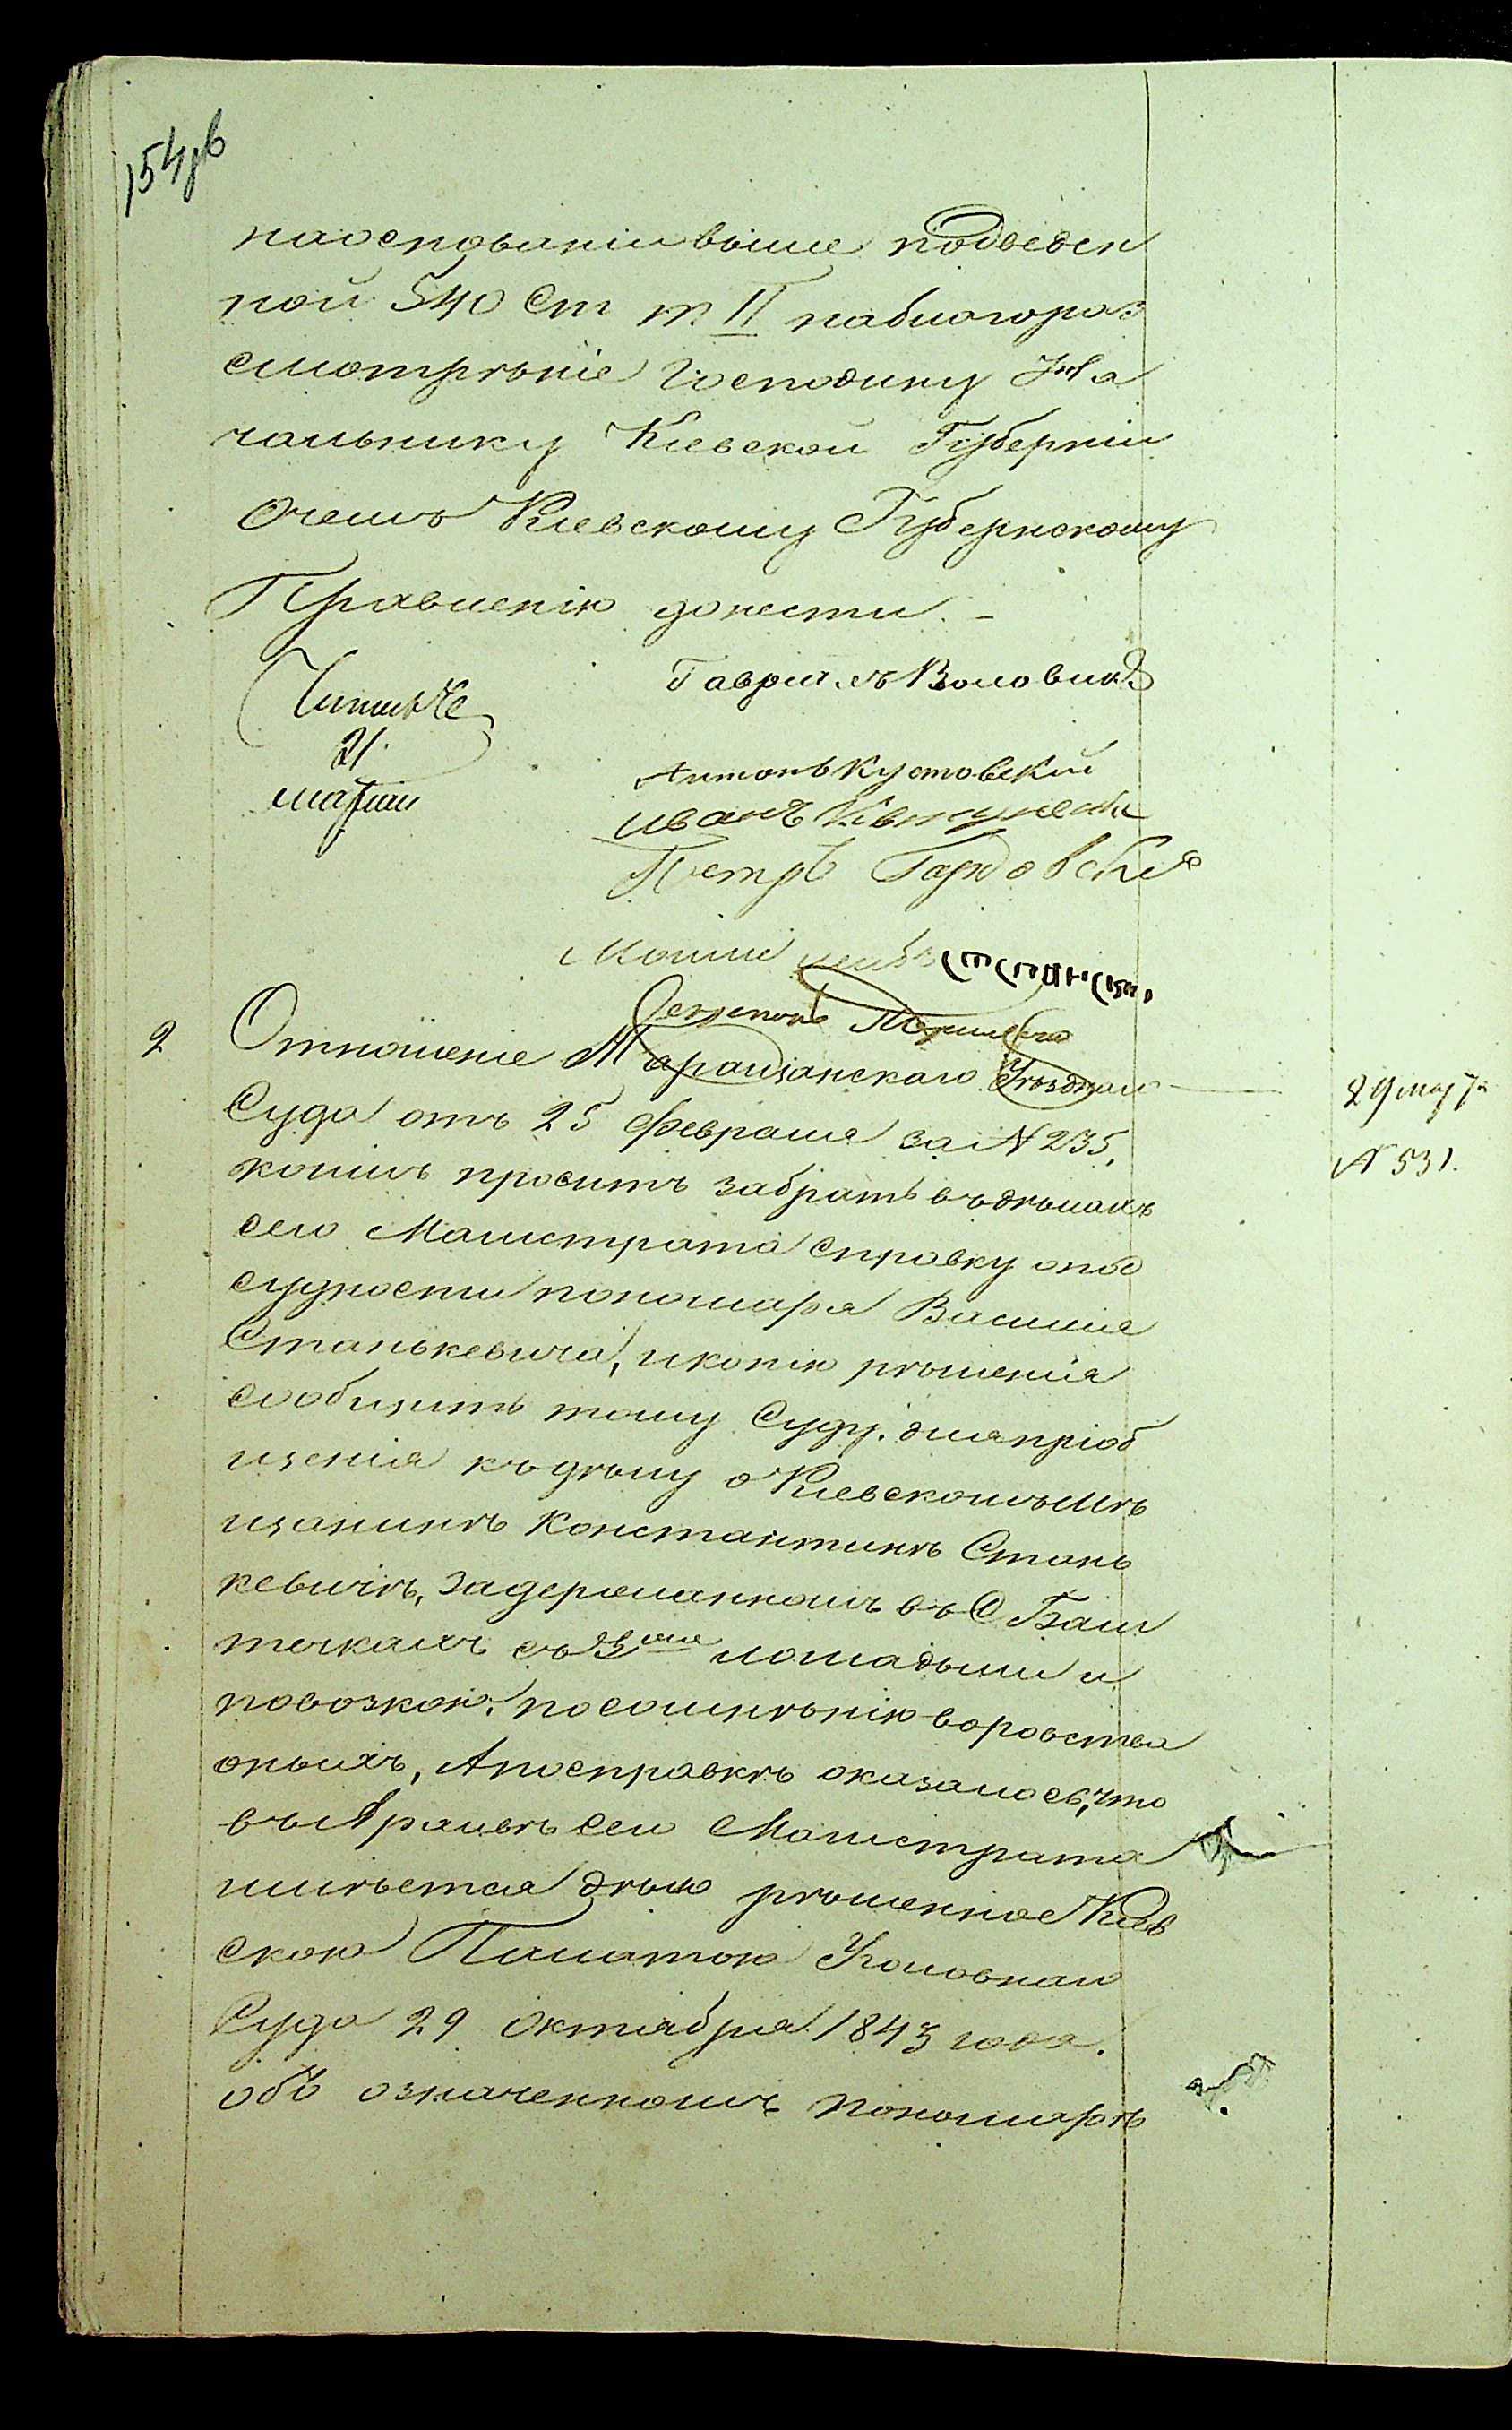 154 об
на основаніи выше подведен
ной 540 Ст т. II на благораз
смотрѣніе Господину На
чальнику Кіевской Губерніи
О чемъ Кіевскому Губернскому
Правленію донести. –
Гавріилъ Воловикъ
21
Антонъ Кустовскій
Иванъ
Петръ
2 Отношеніе Таращанскаго Уѣзднаго
Суда отъ 25 февраля за N 235,
коимъ проситъ забрать въ дѣлахъ
сего Магистрата справку о под
судности пономаря Василія
Станькевича, и копію рѣшенія
сообщить тому Суду, для пріоб
щенія къ дѣлу о Кіевскомъ мѣ
щанинѣ Константинѣ Стань
кевичѣ, задержанномъ въ С Баш
течкахъ съ 3мя лошадьми и
повозкою, по сомнѣнію воровства
оныхъ, А по справкѣ оказалось, что
въ Архивѣ сего Магистрата
имѣется дѣло рѣшенное Кіев
скою Палатою Уголовнаго
Суда 29 Октября 1843 года.
объ означенномъ пономарѣ
29 мар
N 531.